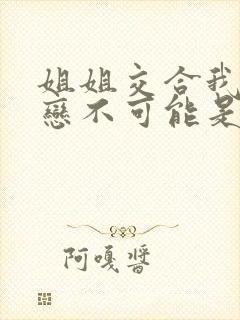 姐姐交合我
戀不可能是
阿嘎醬